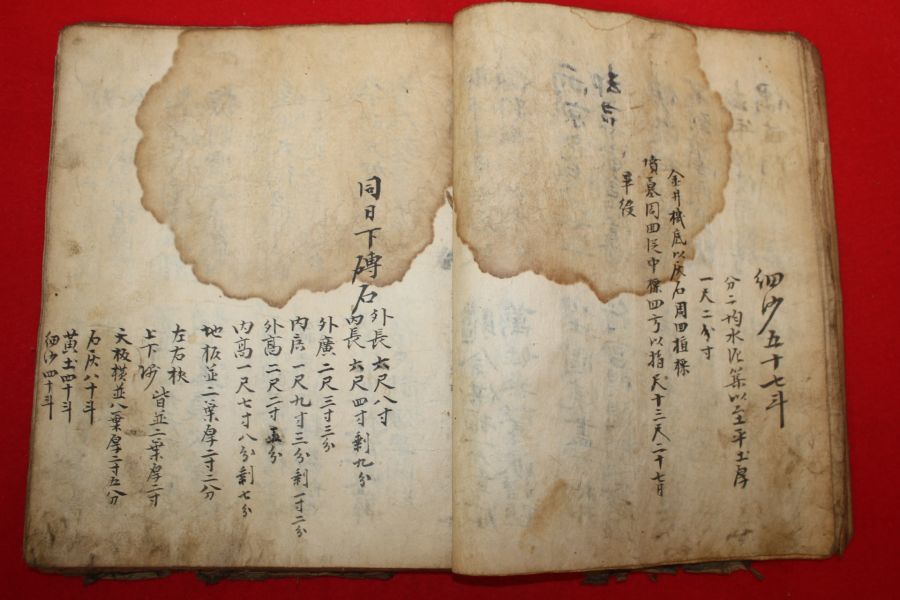 細沙五十七斗
分二均水泥築以三平土厚
一尺二分寸
金井機底以灰石周四植標
墳墓周四 中標四方以指尺十三尺二十七月
辛役
同日下磚石
外長六尺八寸
內長六尺四寸剩九分
外廣二尺三寸三分
內廣一尺九寸三分剩一寸二分
外高二尺二寸五分
內高一尺七寸八分剩七分
地板並二葉厚二寸二分
左右挾
上下 皆並二葉厚二寸
天板橫並八葉厚二寸五分
石灰八十斗
黃土四十斗
細沙四十斗